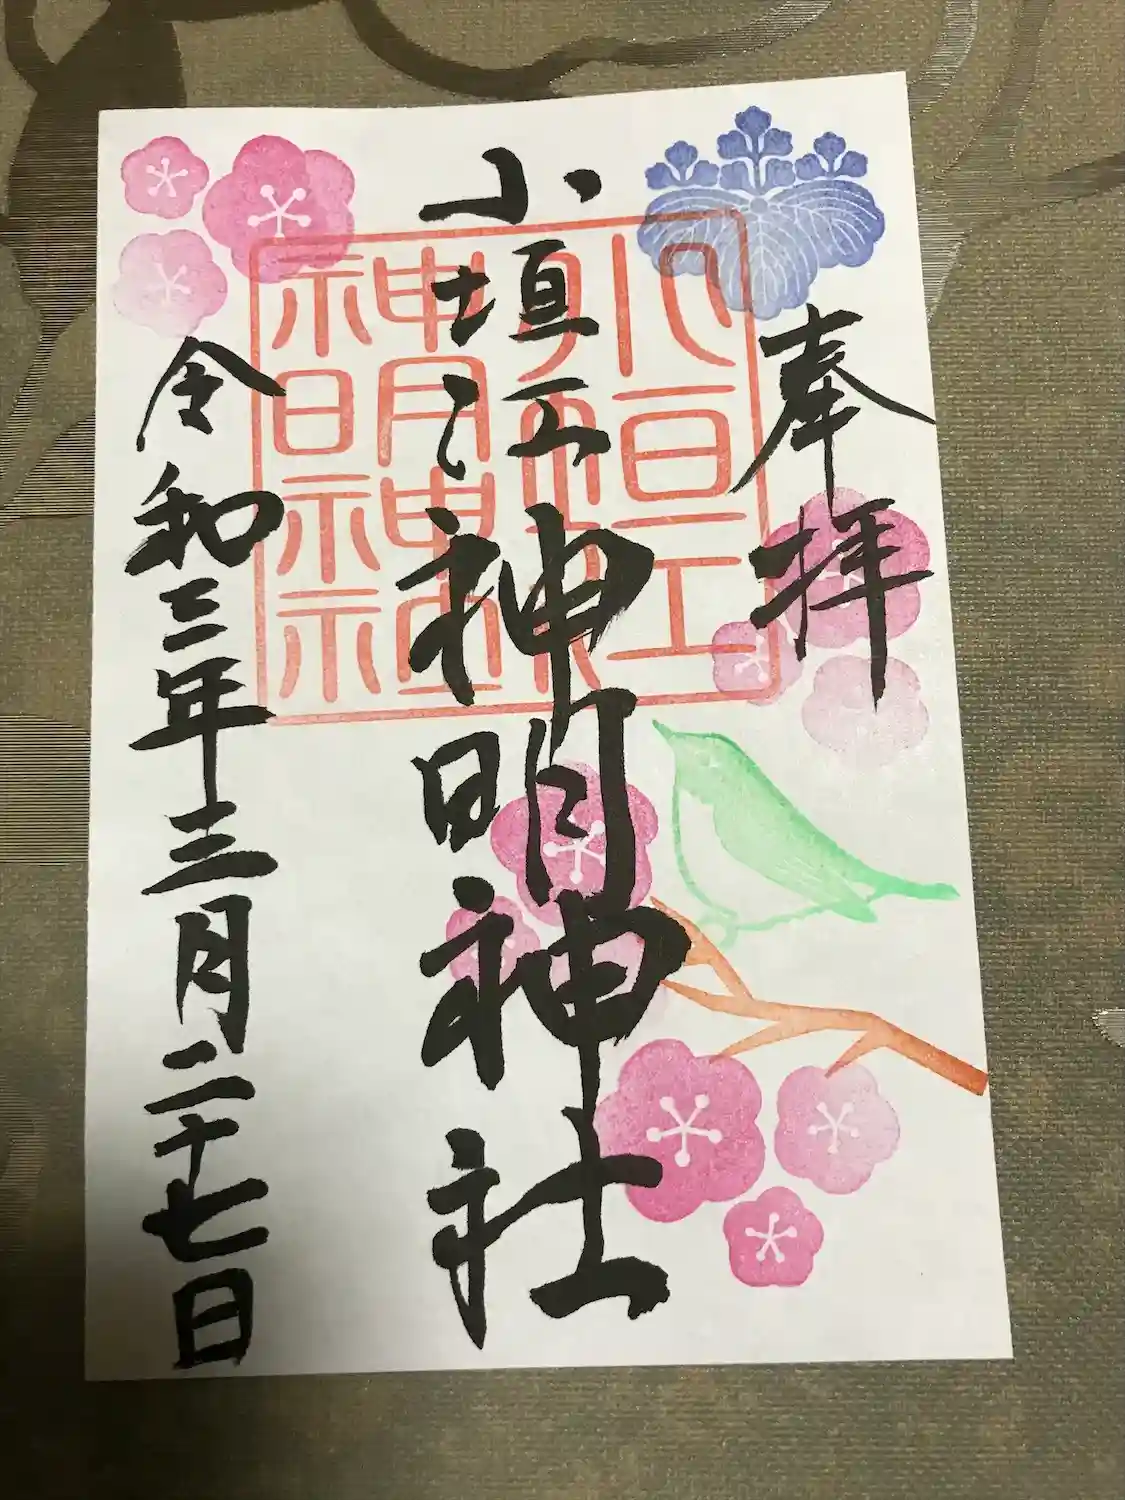 奉拝
小垣江神明神社
令和三年三月二十七日
小垣江
神明神社